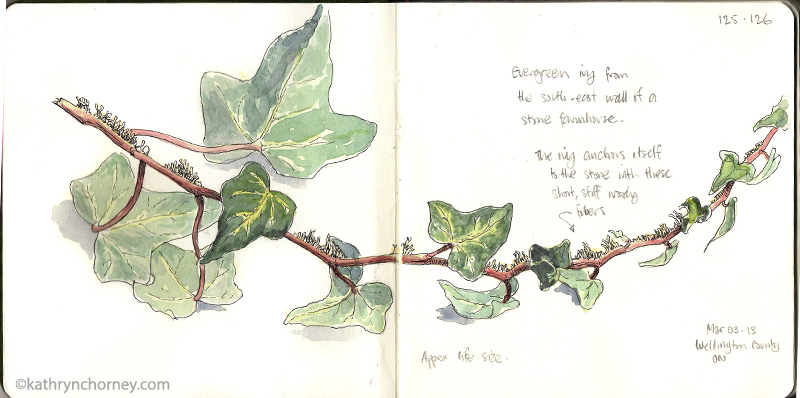 125 - 126
Evergreen ivy from
the south-east wall of a
stone farmhouse.
The ivy anchors itself
to the stone with these
short, stiff woody
fibers
Approx life-size.
Mar 03-13
Wellington County
ON
©kathrynchorney.com